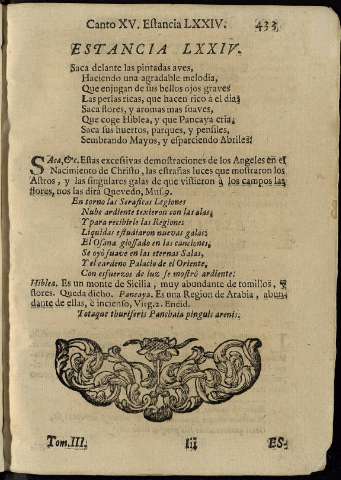 Canto XV. Estancia LXXIV. 433
ESTANCIA LXXIV.
Saca delante las pintadas aves,
Haciendo una agradable melodia,
Que enjugan de sus bellos ojos graves
Las perlas ricas, que hacen rico à el dia;
Saca flores, y aromas mas suaves,
Que coge Hiblea, y que Pancaya cria;
Saca sus huertos, parques, y pensiles,
Sembrando Mayos, y esparciendo Abriles.
SAca, &c. Estas excesivas demostraciones de los Angeles en el
Nacimiento de Christo, las estrañas luces que mostraron los
Astros, y las singulares galas de que vistieron à los campos las
flores, nos las dirà Quevedo, Mus. 9.
En torno las Seraficas Legiones
Nube ardiente texieron con las alas;
Y para recibirle las Regiones
Liquidas estudiaron nuevas galas:
El Osana glossado en las canciones,
Se oyò suave en las eternas Salas,
Y el cardeno Palacio de el Oriente,
Con esfuerzos de luz se mostrò ardiente:
Hiblea. Es un monte de Sicilia, muy abundante de tomillos, y
flores. Queda dicho. Pancaya. Es una Region de Arabia, abun-
dante de ellas, è incienso, Virg. 2. Eneid.
Totaque thuriferis Panchaia pinguis arenis.
Tom. III. Iii ES-